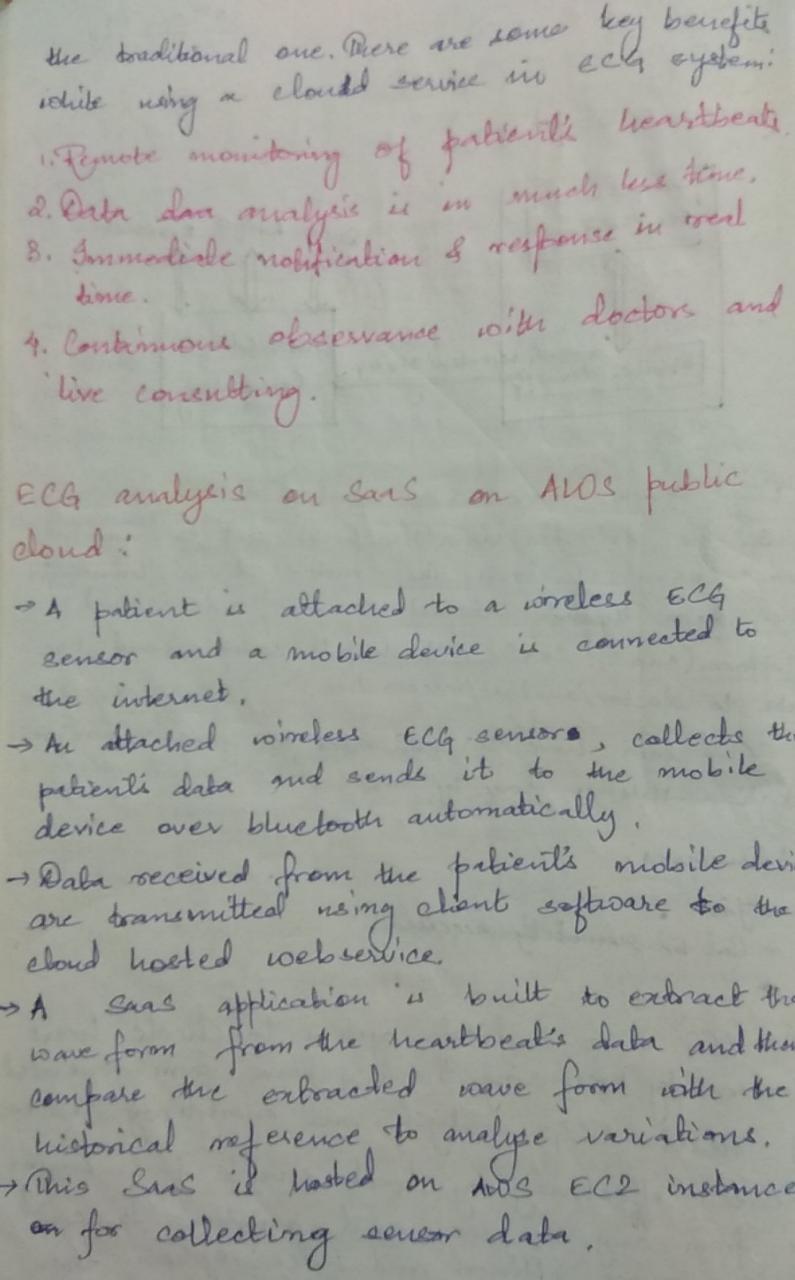 the traditional one. There are some key benefits
while using a cloud service in ECG system:
1. Remote monitoring of patient's heartbeats
2. Data analysis is in much less time.
3. Immediate notification & response in real
time.
4. Continuous observance with doctors and
live consulting.
ECG analysis on SaaS on AWS public
cloud :
→ A patient is attached to a wireless ECG
sensor and a mobile device is connected to
the internet.
→ An attached wireless ECG sensors, collects the
patient's data and sends it to the mobile
device over bluetooth automatically.
→ Data received from the patient's mobile devi
are transmitted using client software to the
cloud hosted webservice.
→ A SaaS application is built to extract the
wave form from the heartbeat's data and then
compare the extracted wave form with the
historical reference to analyse variations.
→ This SaaS is hosted on AWS EC2 instance
for collecting sensor data.